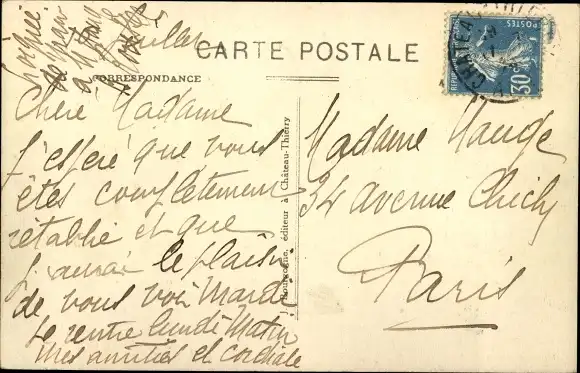 CARTE POSTALE
CORRESPONDANCE
Chère Madame
J'espère que vous
êtes complètement
rétablie et que
j'aurai le plaisir
de vous voir Mardi
Je rentre lundi Matin
Mes amitiés et cordiale
J. Bourgogne, éditeur à Château-Thierry
POSTES
30c
CHATEAU
Madame Mauge
34 avenue Clichy
Paris